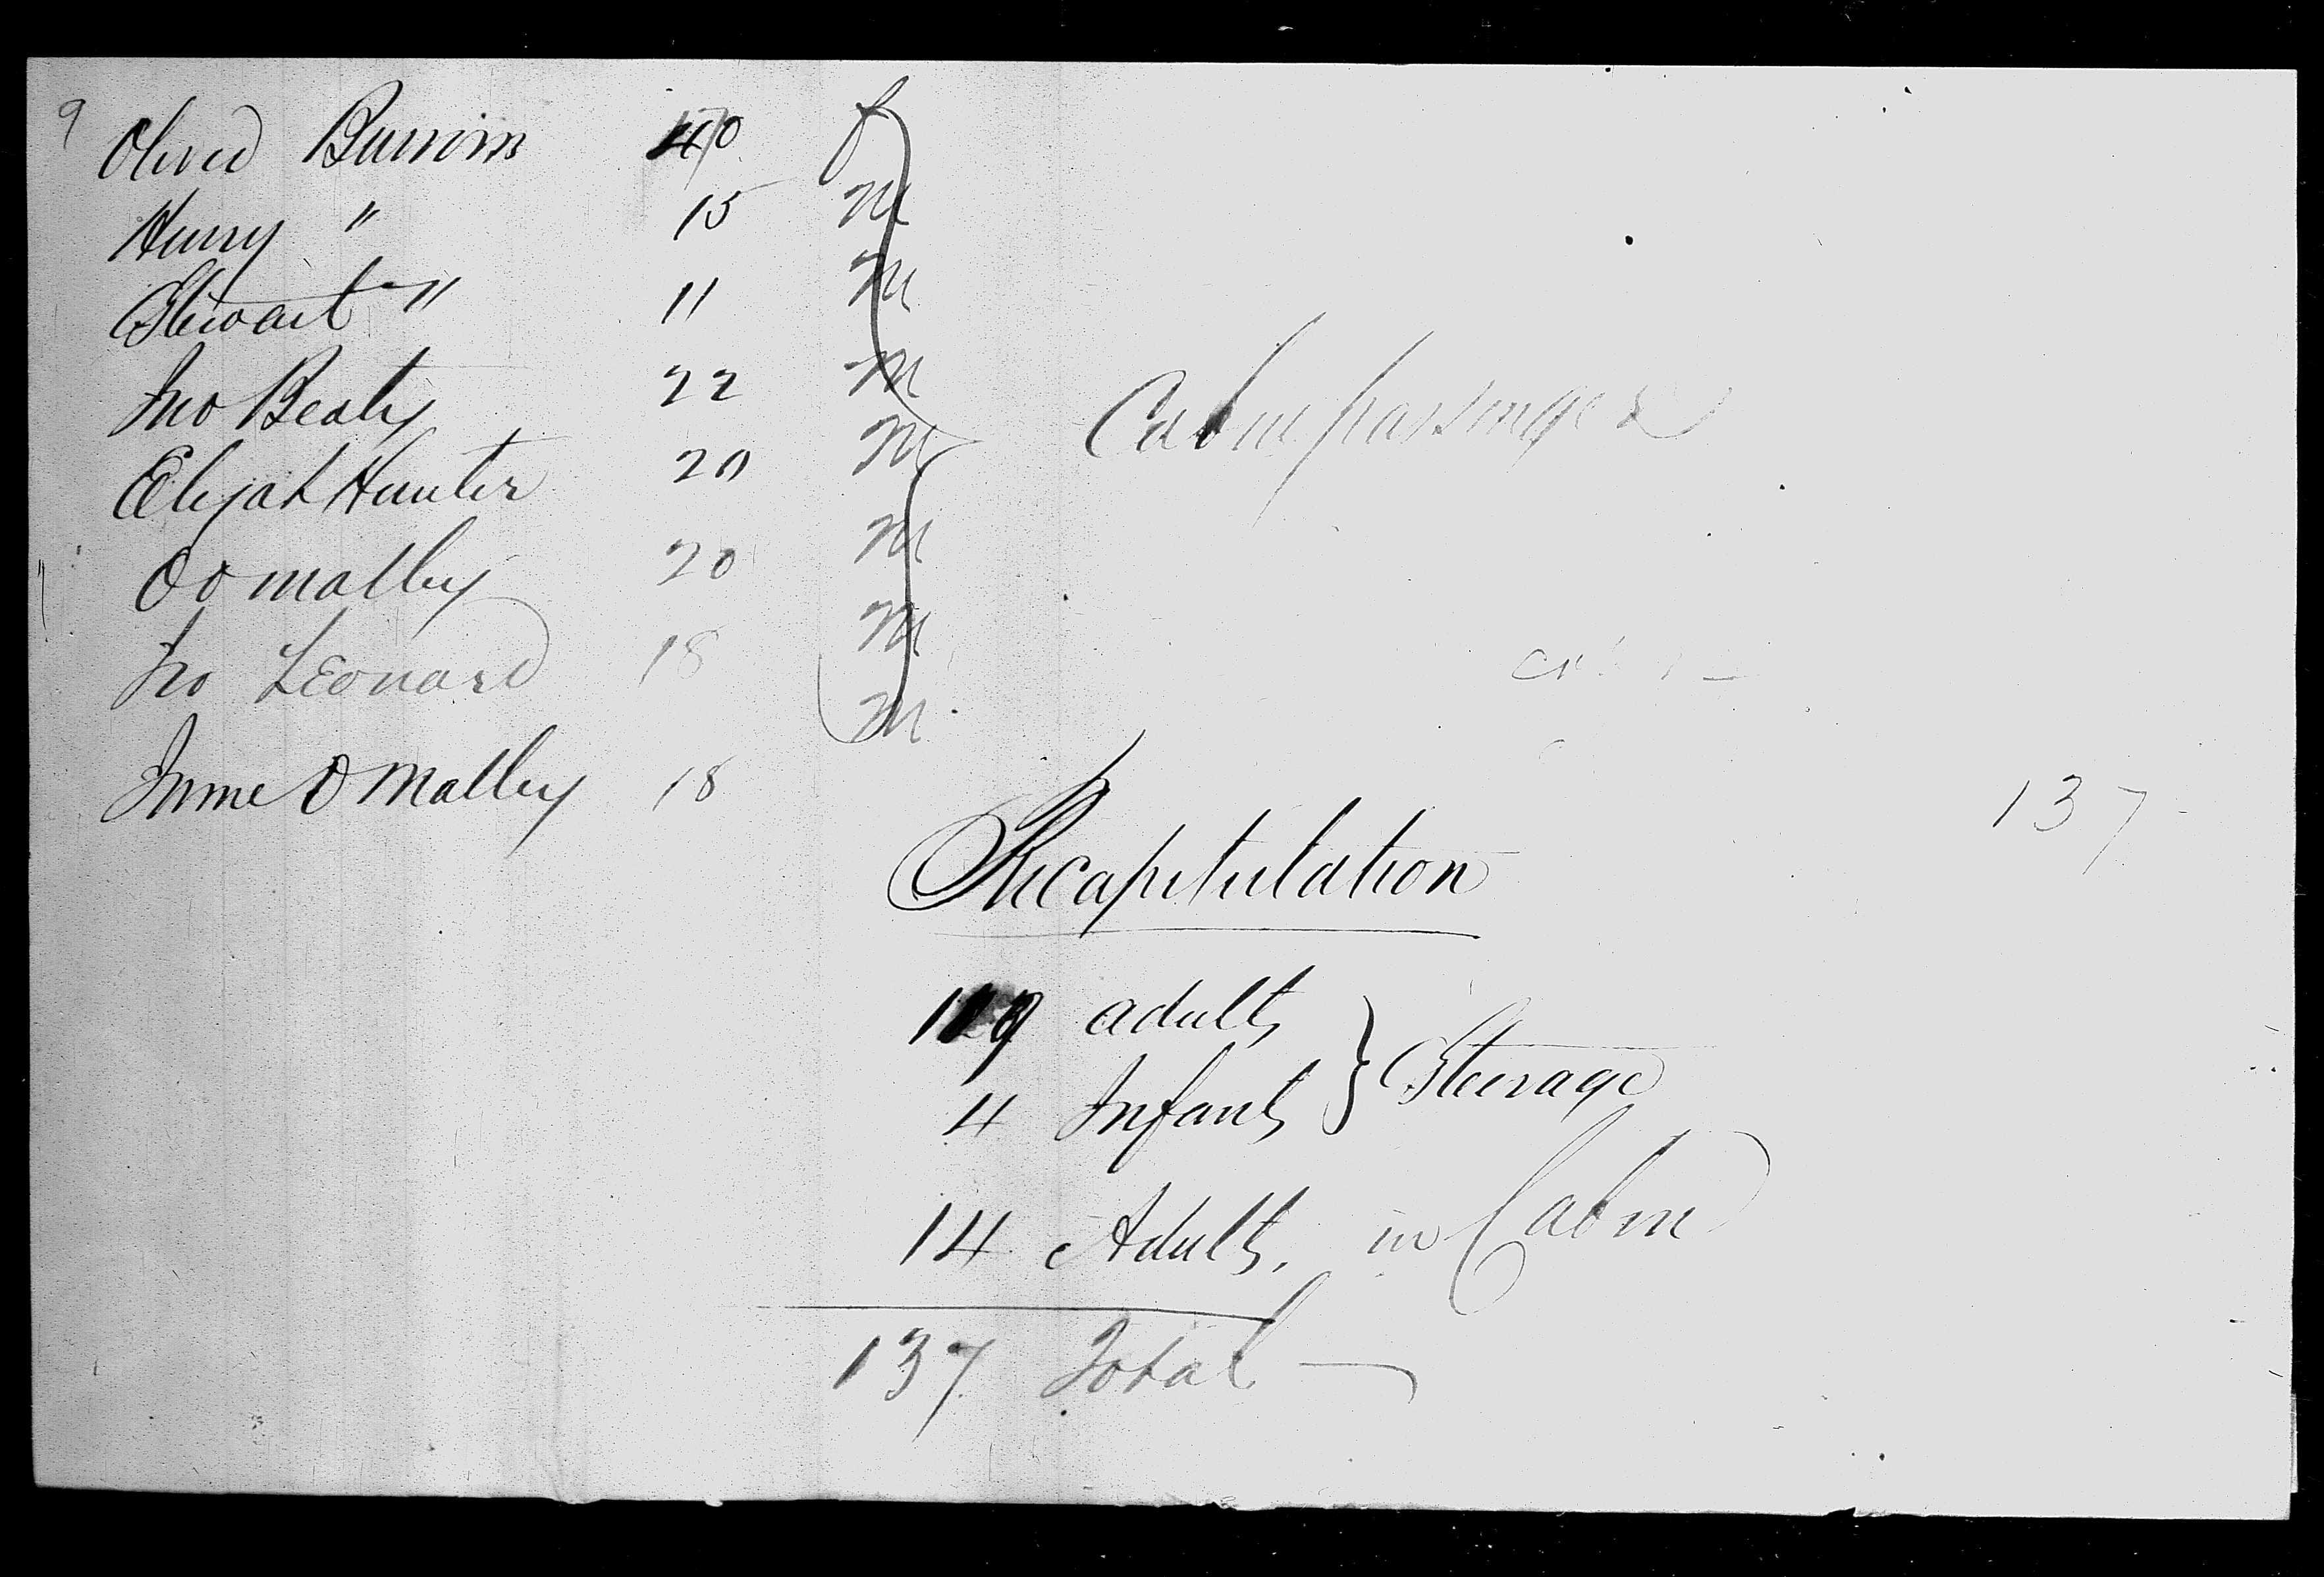 9 Burrows 40 f
Henry " 15 M
Stewart " 11 M
Jno Beaty 22 M
Elijah Hunter 20 M
O O malley 20 M
Jno Leonard 18 M
O Malley 18 M
Cabin passengers
137
Recapitulation
119 adults
4 Infants } Steerage
14 Adults, in Cabin
137 Total